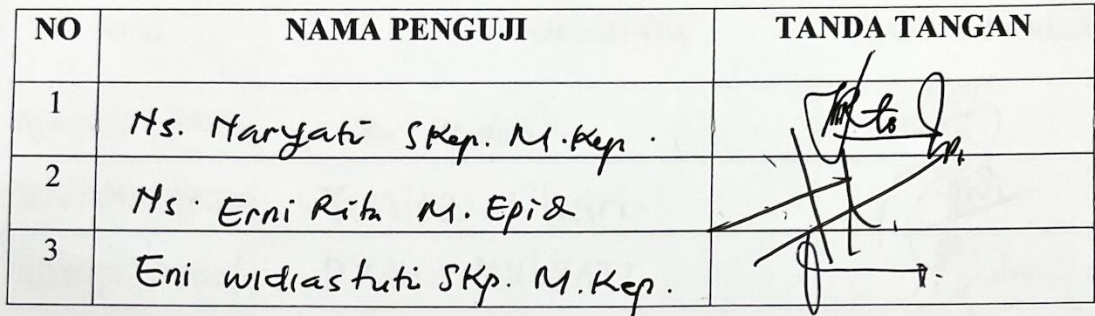 NO NAMA PENGUJI TANDA TANGAN
1 Ns. Naryati SKep. M.Kep.
2 Ns. Erni Rita M. Epid
3 Eni widiastuti SKp. M.Kep.